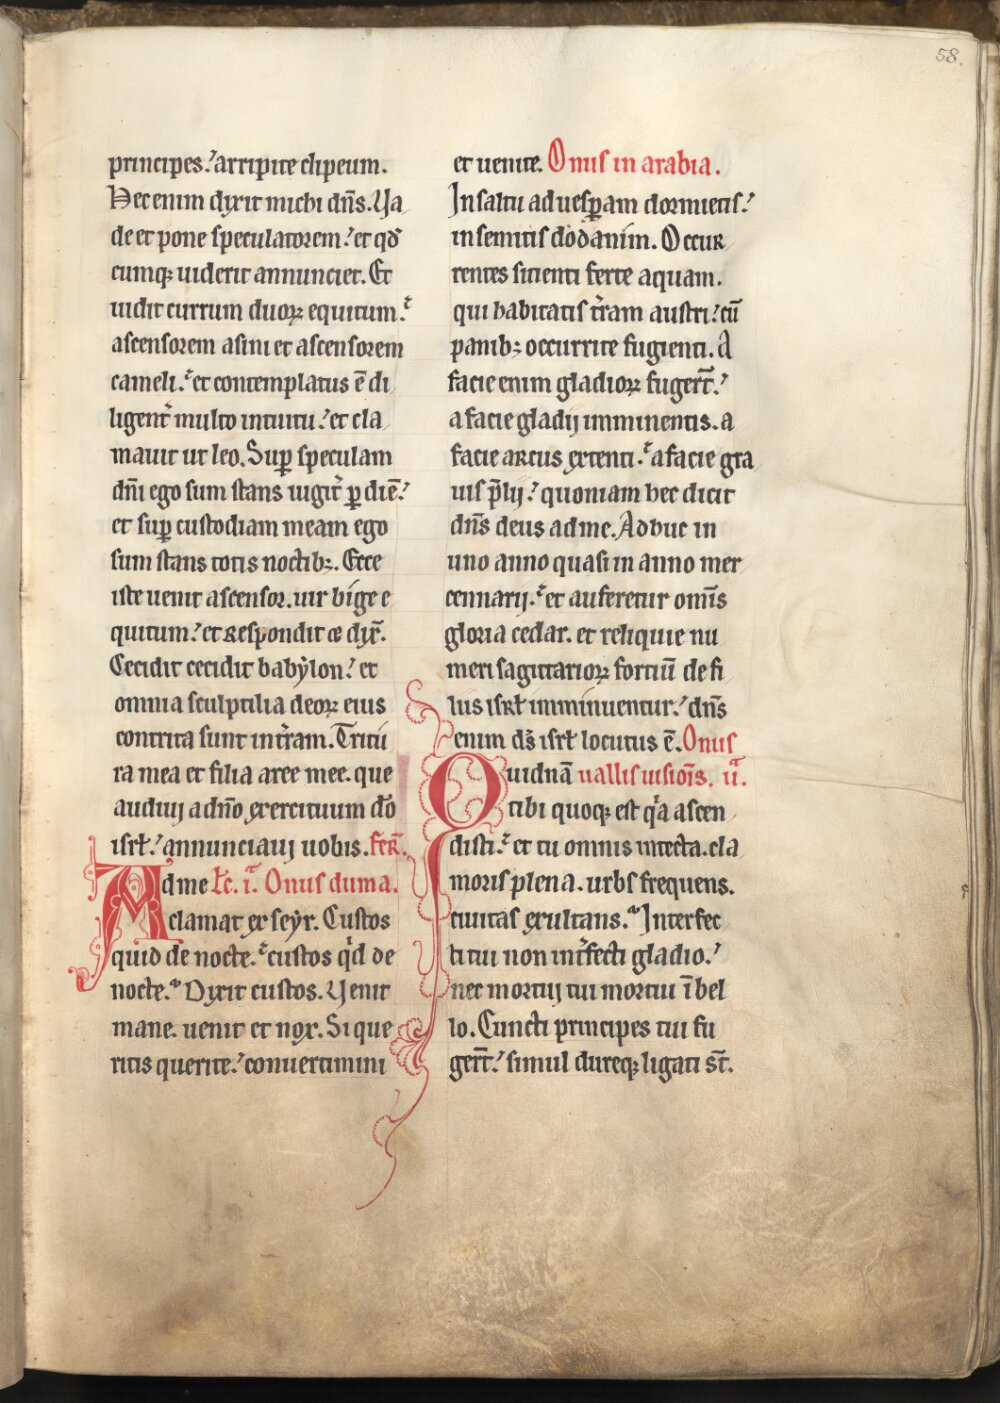 58.
principes. arripite clipeum.
Hec enim dyxit michi dn̄s. Va
de et pone speculatorem. et qd̄
cumq; uiderit annunciet. Et
uidit currum duoꝝ equitum.
ascensorem asini et ascensorem
cameli. et contemplatus ē di
ligent̄ multo intuitu. et cla
mauit ut leo. Suꝑ speculam
dn̄i ego sum stans iugit̄ ꝑ diē.
et suꝑ custodiam meam ego
sum stans totis noctib;. Ecce
iste uenit ascensor. uir bige e
quitum. et respondit et dyx̄.
Cecidit cecidit babẏlon. et
omnia sculptilia deoꝝ eius
contrita sunt in t̄ram. Tritu
ra mea et filia aree mee. que
audiuj a dn̄o exercituum dō
isrł. annunciauj uobis. Fer̄.
Ad me Łc. i. Onus duma.
clamat ex seẏr. Custos
quid de nocte. custos qͥd de
nocte. Dixit custos. Venit
mane. uenit et nox. Si que
ritis querite. conuertimini
et uenite. Onus in arabia.
In saltu ad uesꝑam dormietis.
in semitis dodanim. Occur
rentes sitienti ferte aquam.
qui habitatis t̄ram austri. cū
panib; occurrite fugienti. A
facie enim gladioꝝ fugert̄.
a facie gladij imminentis. a
facie arcus extenti. a facie gra
uis p̄lij. quoniam hec dicit
dn̄s deus ad me. Adhuc in
uno anno quasi in anno mer
cennarij. et auferetur om̄is
gloria cedar. et reliquie nu
meri sagittarioꝝ fortiū de fi
lus isrł imminuentur. dn̄s
enim ds̄ isrł locutus ē. Onus
Quidnā uallis uisiois̄. ii.
tibi quoq; est qͣa ascen
disti. et tu omnis in tecta. cla
moris plena. urbs frequens.
ciuitas exultans. Interfec
ti tui non int̄fecti gladio.
nec mortuj tui mortui ī bel
lo. Cuncti principes tui fu
gert̄. simul dureq; ligati st̄.